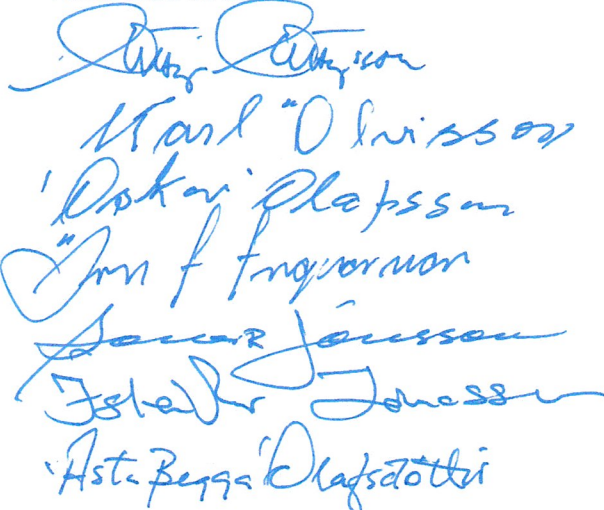 Karl Ölvisson
Óskar Ólafsson
Örn F Ingvarsson
Jónsson
Ísleifur Jónasson
Ásta Begga Ólafsdóttir